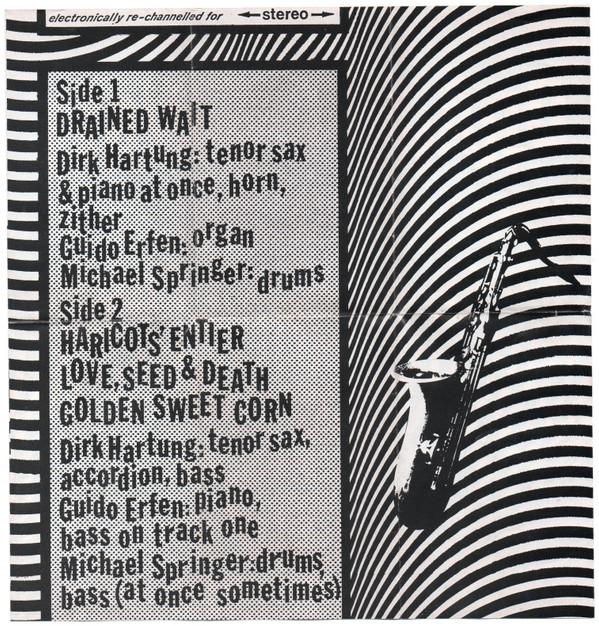 electronically re-channelled for ←stereo→
Side 1
DRAINED WAIT
Dirk Hartung: tenor sax
& piano at once, horn,
zither
Guido Erfen: organ
Michael Springer: drums
Side 2
HARICOTS' ENTIER
LOVE, SEED & DEATH
GOLDEN SWEET CORN
Dirk Hartung: tenor sax,
accordion, bass
Guido Erfen: piano,
bass on track one
Michael Springer: drums,
bass (at once sometimes)